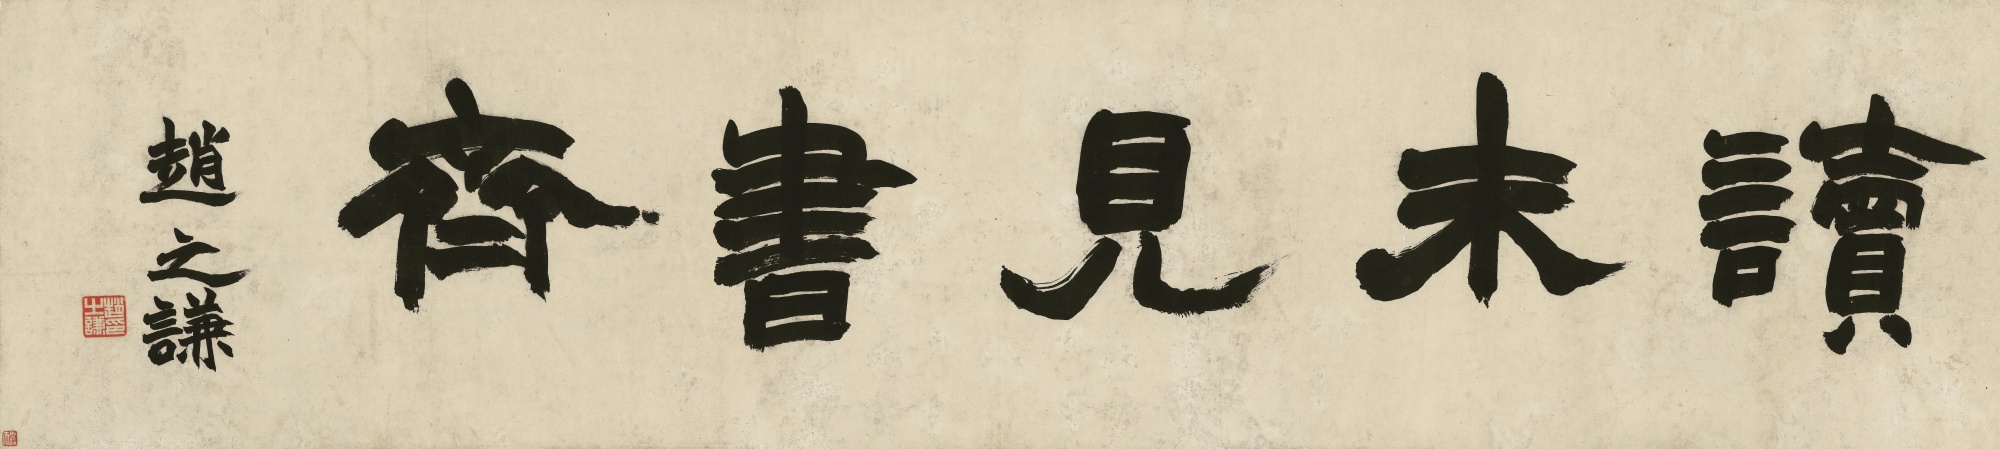 讀未見書齊
趙之謙
趙印之謙